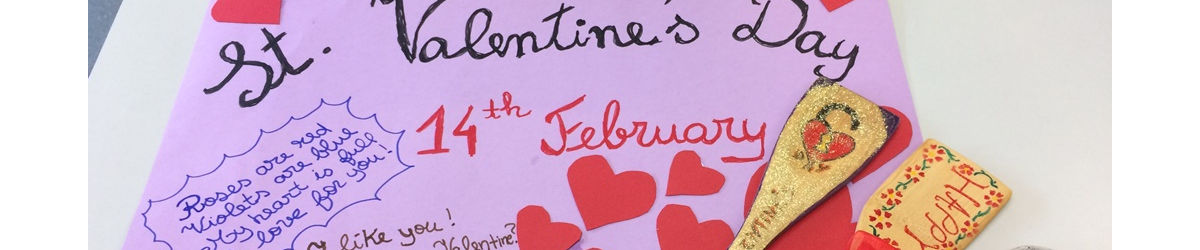 St. Valentine's Day
14th February
Roses are red
Violets are blue
My heart is full
love for you!
I like you!
Valentine?
HAPPY